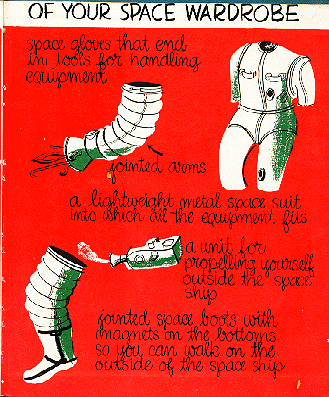 OF YOUR SPACE WARDROBE
space gloves that end
in tools for handling
equipment
jointed arms
a lightweight metal space suit
into which all the equipment fits
a unit for
propelling yourself
outside the space
ship
jointed space boots with
magnets on the bottoms
so you can walk on the
outside of the space ship